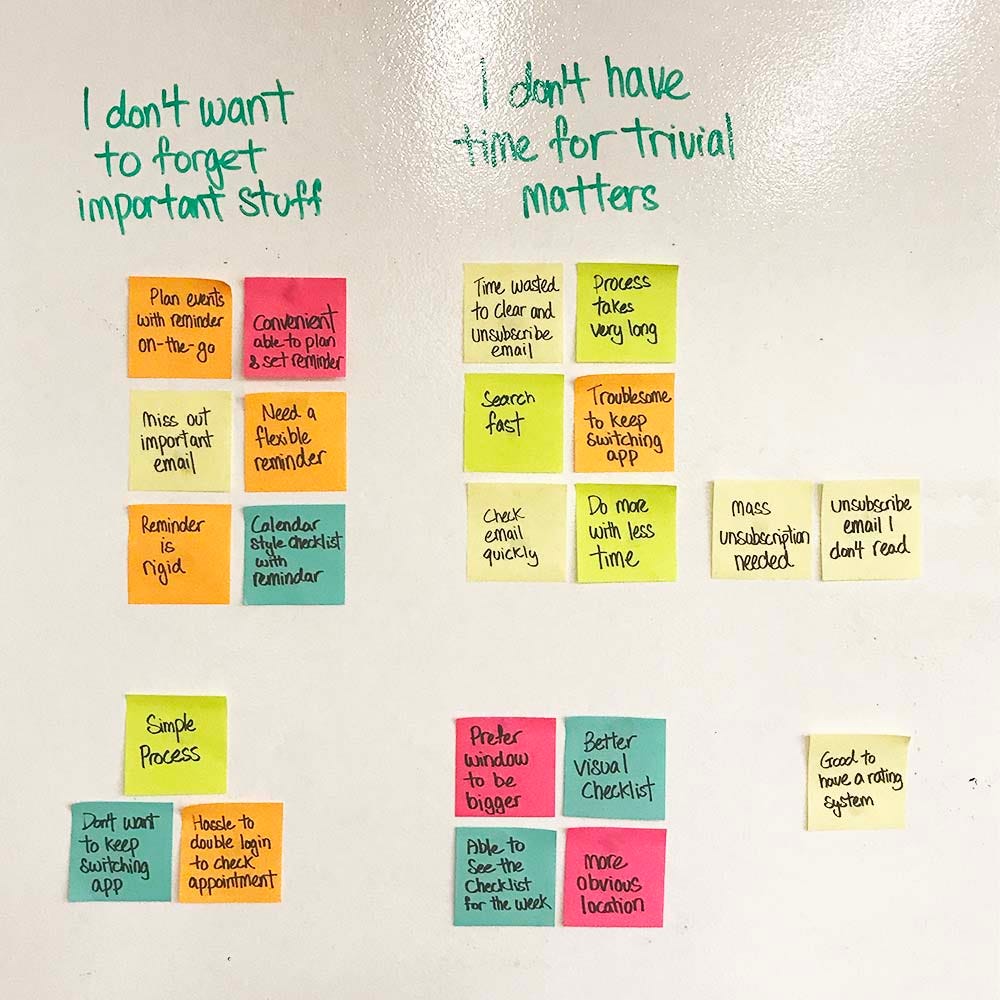 I don't want
to forget
important stuff
I don't have
time for trivial
matters
Plan events
with reminder
on-the-go
Convenient
able to plan
& set reminder
Miss out
important
email
Need a
flexible
reminder
Reminder
is
rigid
Calendar
style checklist
with
remindar
Time wasted
to clear and
unsubscribe
email
Process
takes
very long
Search
fast
Troublesome
to keep
switching
app
Check
email
quickly
Do more
with less
time
Mass
unsubscription
needed
unsubscribe
email I
don't read
Simple
Process
Don't want
to keep
switching
app
Hassle to
double login
to check
appointment
Prefer
window
to be
bigger
Better
visual
Checklist
Able to
See the
Checklist
for the week
More
obvious
location
Good to
have a rating
system